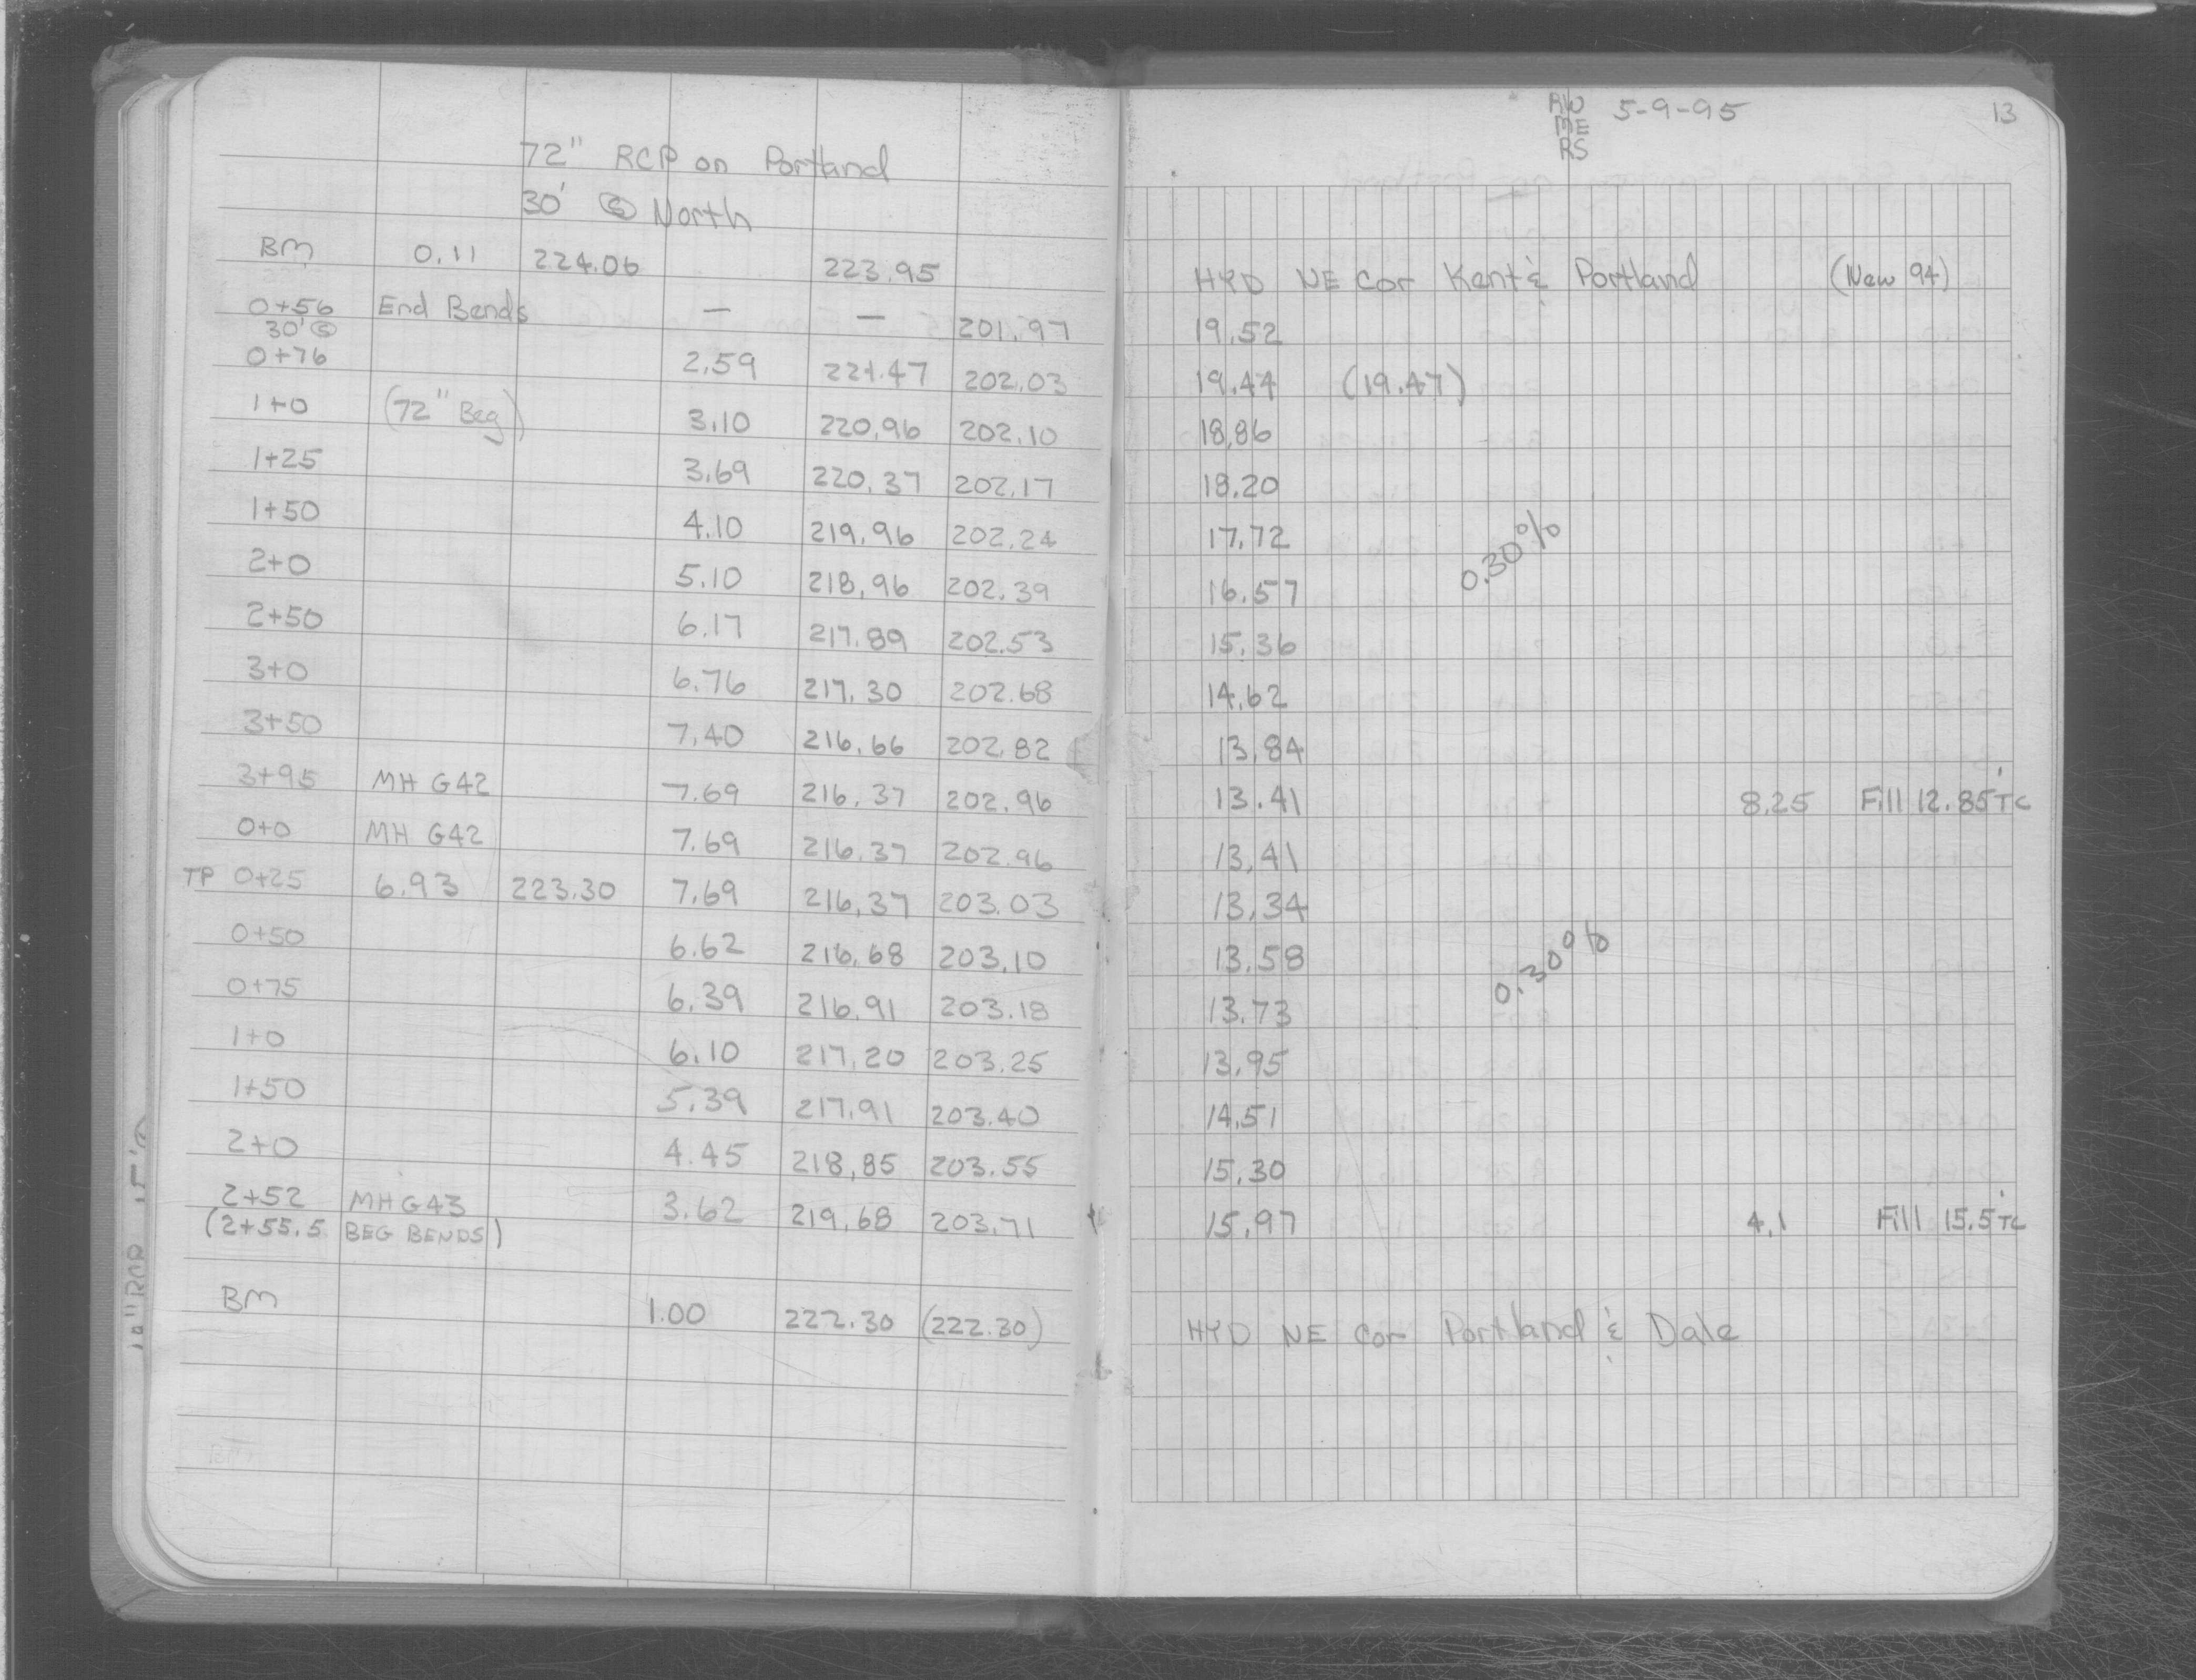 72" RCP on Portland
30' Ⓢ North
BM 0.11 224.06 223.95
0+56 End Bends — — 201.97
30' Ⓢ
0+76 2.59 221.47 202.03
1+0 (72" Beg) 3.10 220.96 202.10
1+25 3.69 220.37 202.17
1+50 4.10 219.96 202.24
2+0 5.10 218.96 202.39
2+50 6.17 217.89 202.53
3+0 6.76 217.30 202.68
3+50 7.40 216.66 202.82
3+95 MH G42 7.69 216.37 202.96
0+0 MH G42 7.69 216.37 202.96
TP 0+25 6.93 223.30 7.69 216.37 203.03
0+50 6.62 216.68 203.10
0+75 6.39 216.91 203.18
1+0 6.10 217.20 203.25
1+50 5.39 217.91 203.40
2+0 4.45 218.85 203.55
2+52 MH G43 3.62 219.68 203.71
(2+55.5 BEG BENDS)
BM 1.00 222.30 (222.30)
RW 5-9-95 13
ME
RS
HYD NE Cor Kent & Portland (New 94)
19.52
19.44 (19.47)
18.86
18.20
17.72
0.30%
16.57
15.36
14.62
13.84
13.41 8.25 Fill 12.85 TC
13.41
13.34
13.58
0.30%
13.73
13.95
14.51
15.30
15.97 4.1 Fill 15.5 TC
HYD NE Cor Portland & Dale